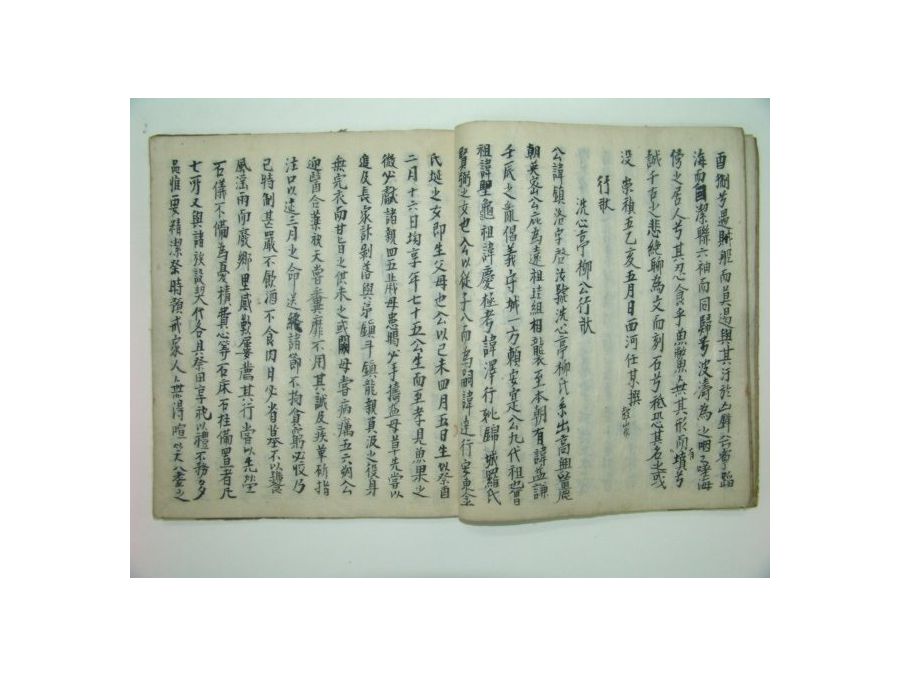 酉獨兮過期船而莫過與其汙於
海而自潔聯六袖而同歸兮波濤為之咽海
傍之居人兮其忍食乎魚無其形而墳兮
誠千古之悲絶聊為文而刻石兮秪恐其名之或
没 崇禎五乙亥五月日西河任某撰
行狀
洗心亭柳公行狀
公諱鎮洛字啓號洗心亭柳氏系出高興麗
朝英密公庇為遠祖珪組相襲至本朝有諱益謙
壬辰之亂倡義守城一方頼安寔公九代祖也曾
祖諱聖龜祖諱慶極考諱澤行妣歸城羅氏
賢獨之女也公以從子入而為嗣諱達行安東金
氏埏之女即生父母也公以己未四月五日生以癸酉
二月十六日均享年七十五公生而至孝見魚果之
微必獻諸親四五歲母患腫必手擣益母草先嘗以
進及長家計剝落與弟鎮斗鎮龍親負汲之役身
無完衣而甘旨之供未之或闕母嘗病癘五六朔公
迎醫合藥祝天嘗糞靡不用其誠及疾革斫指
注口以延三月之命送終諸節不拘貧窮必
己特制甚嚴不飲酒不食肉月必省墓不以
風淫雨而廢鄉里感歎屢薦其行嘗以先塋
石儀不備為憂積費心等石床石柱備置者凡
七所又與諸族設契代各具祭田享祀以禮不務多
品惟要精潔祭時預戒家人無得喧以大人之